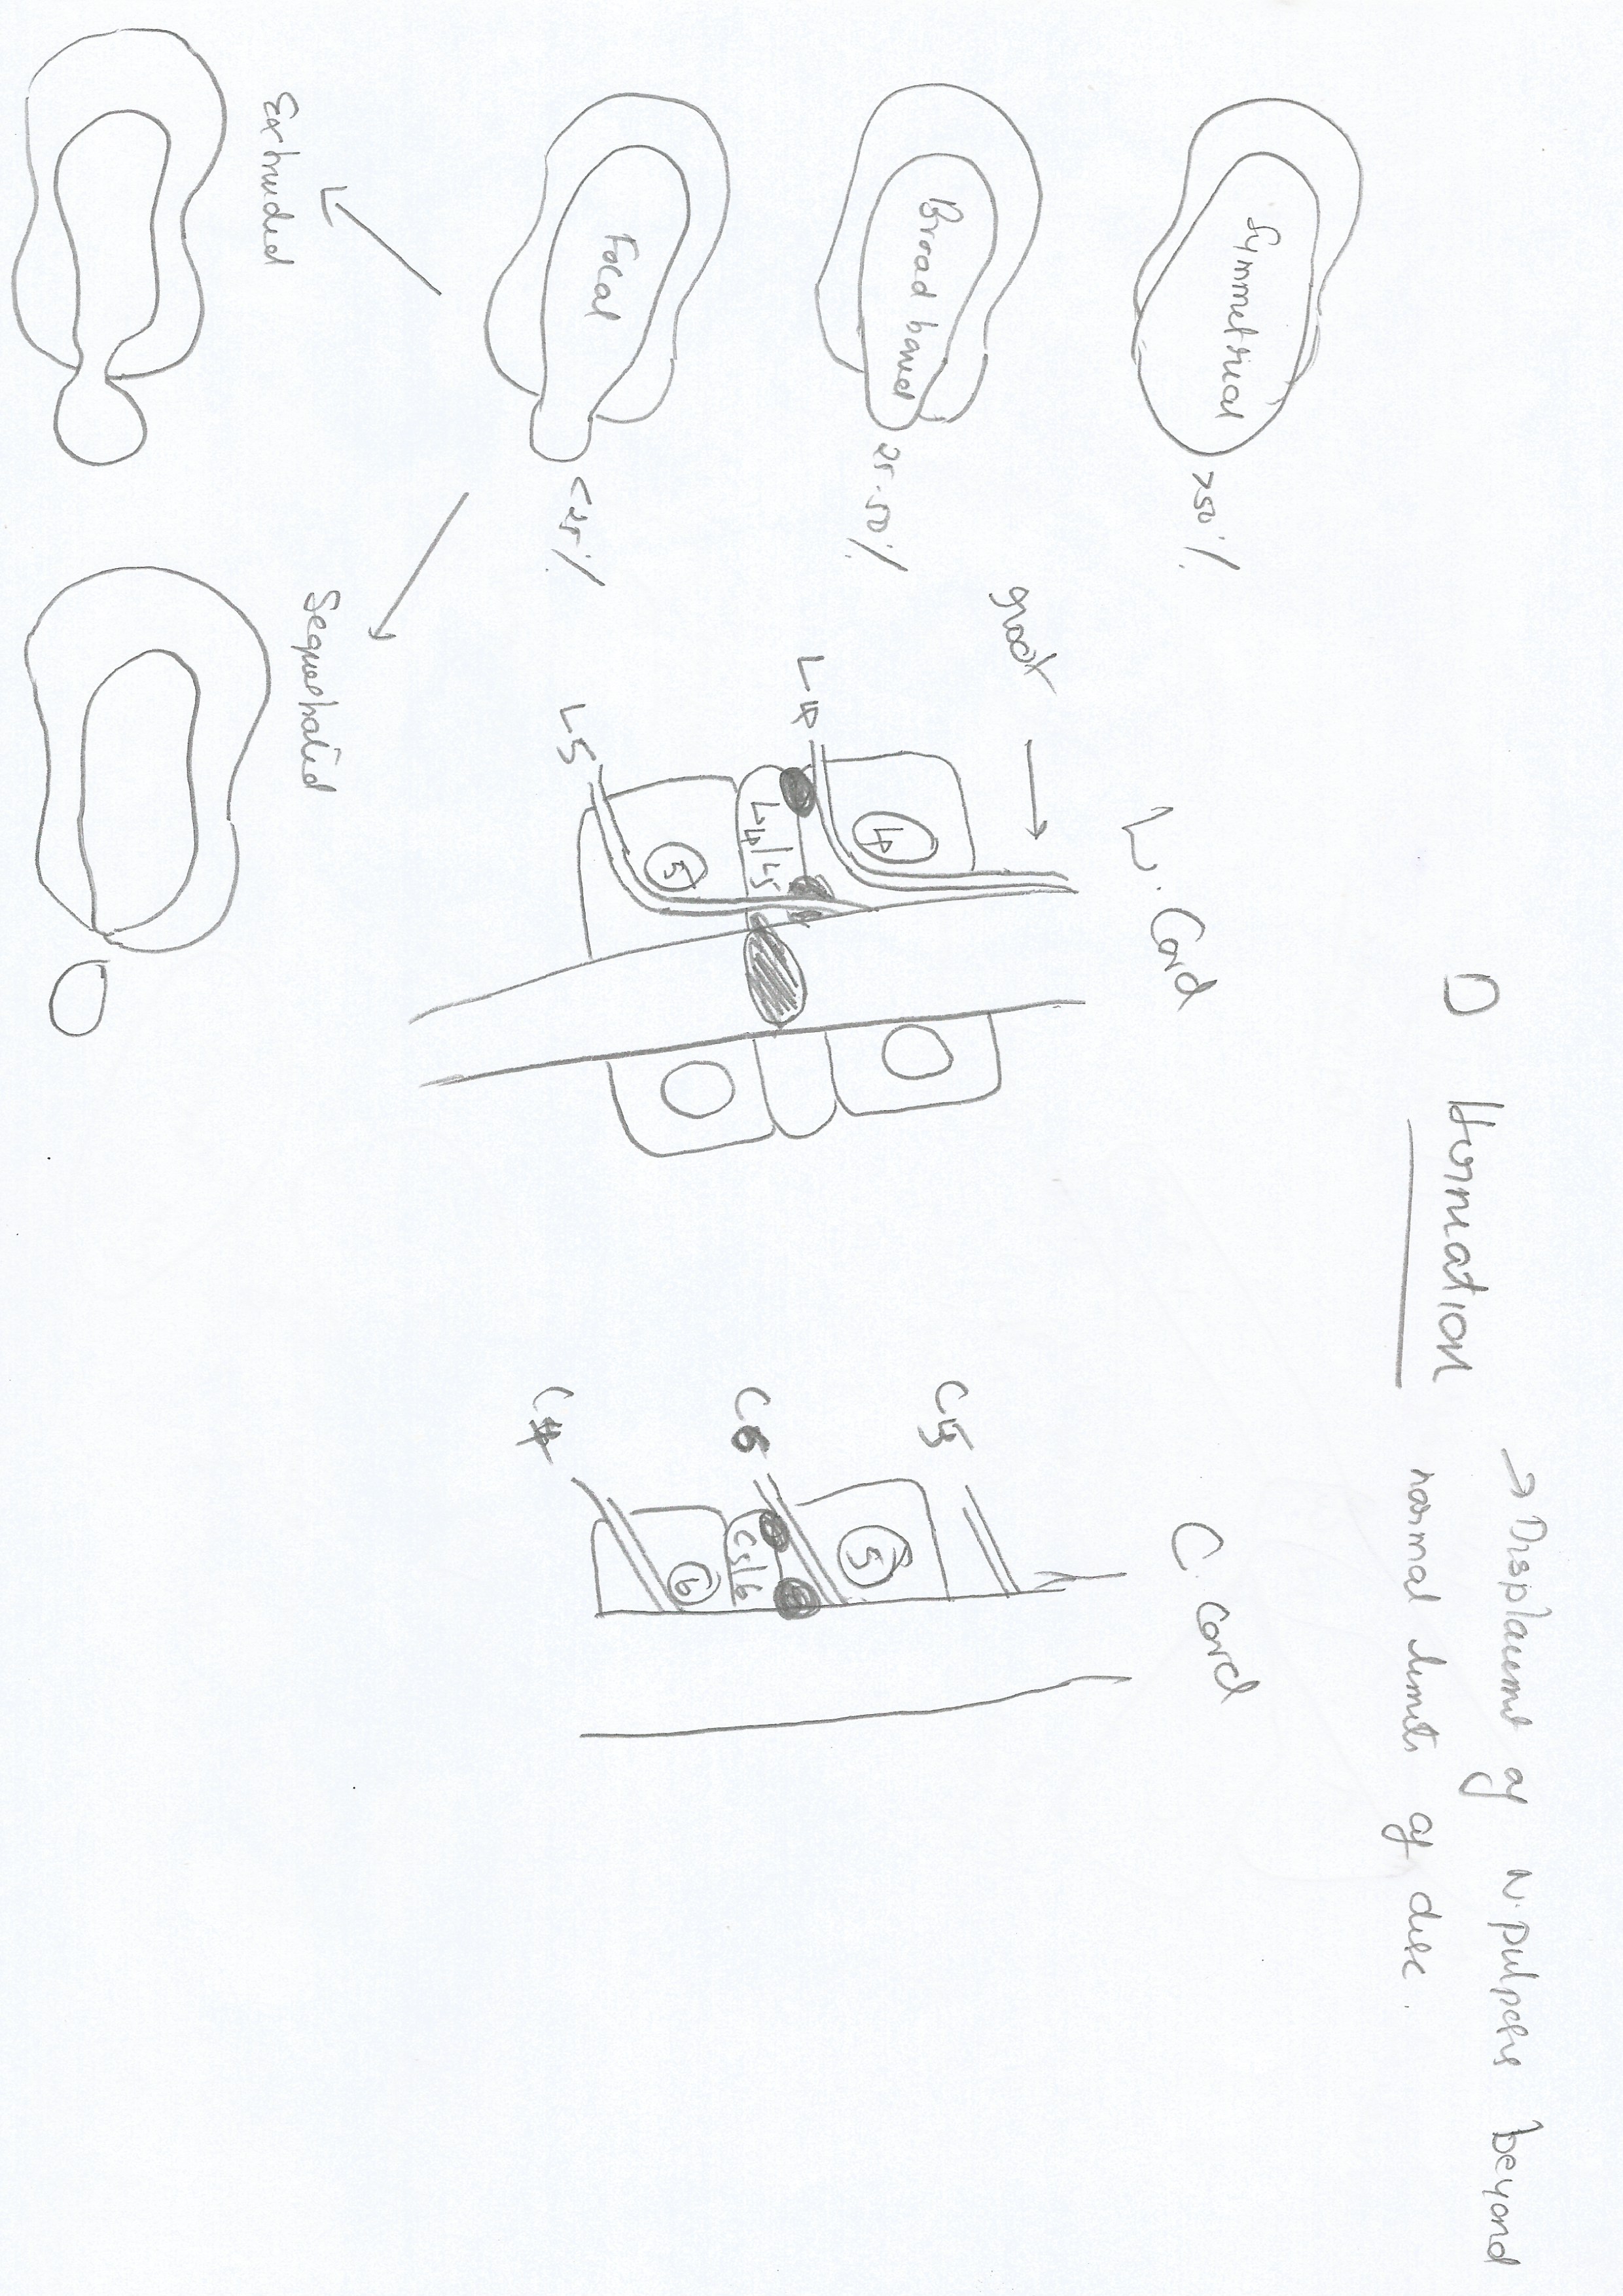 D Herniation
→ Displacemt of N. pulposus beyond
normal limits of disc.
Symmetrical
>50%
Broad based
25-50%
Focal
<25%
Extruded
Sequestrated
L. Cord
root →
4
L4
L4/L5
5
L5
C. Cord
C5
5
C6
C5/6
6